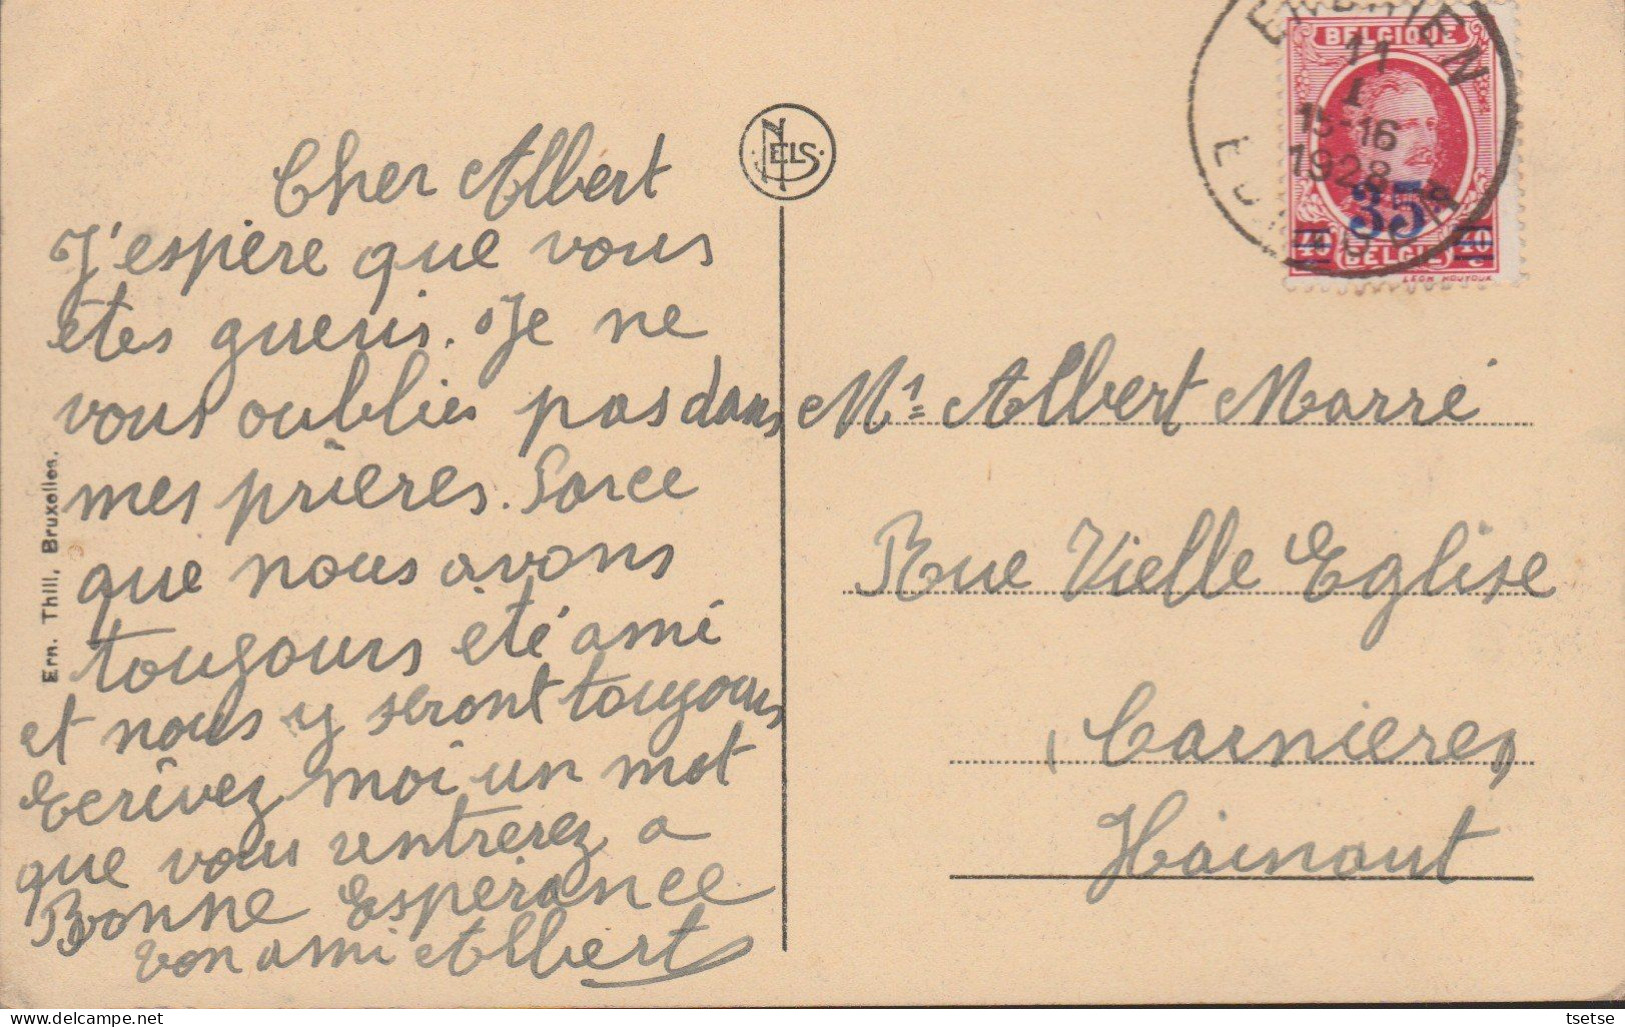 Cher Albert
J'espère que vous
êtes gueris. Je ne
vous oublies pas dans
mes prières. Parce
que nous avons
toujours été ami
et nous y seront toujours
Ecrivez moi un mot
que vous rentrerez a
Bonne Espérance
ton ami Albert
Ern. Thill, Bruxelles.
NELS
BELGIQUE
11
I
15-16
1928
35c
40
40
c
BELGIE
LEON HOUYOUX
Mr Albert Marré
Rue Vielle Eglise
(Carnières)
Hainaut
tsetse